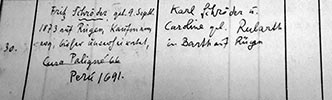 30.
Fritz Schröder, geb. 9. Sept.
1873 auf Rügen, Kaufmann
ev., bisher unverheiratet,
Casa Poligné 66
Perú 1691.
Karl Schröder u.
Caroline geb. Rubarth
in Barth auf Rügen